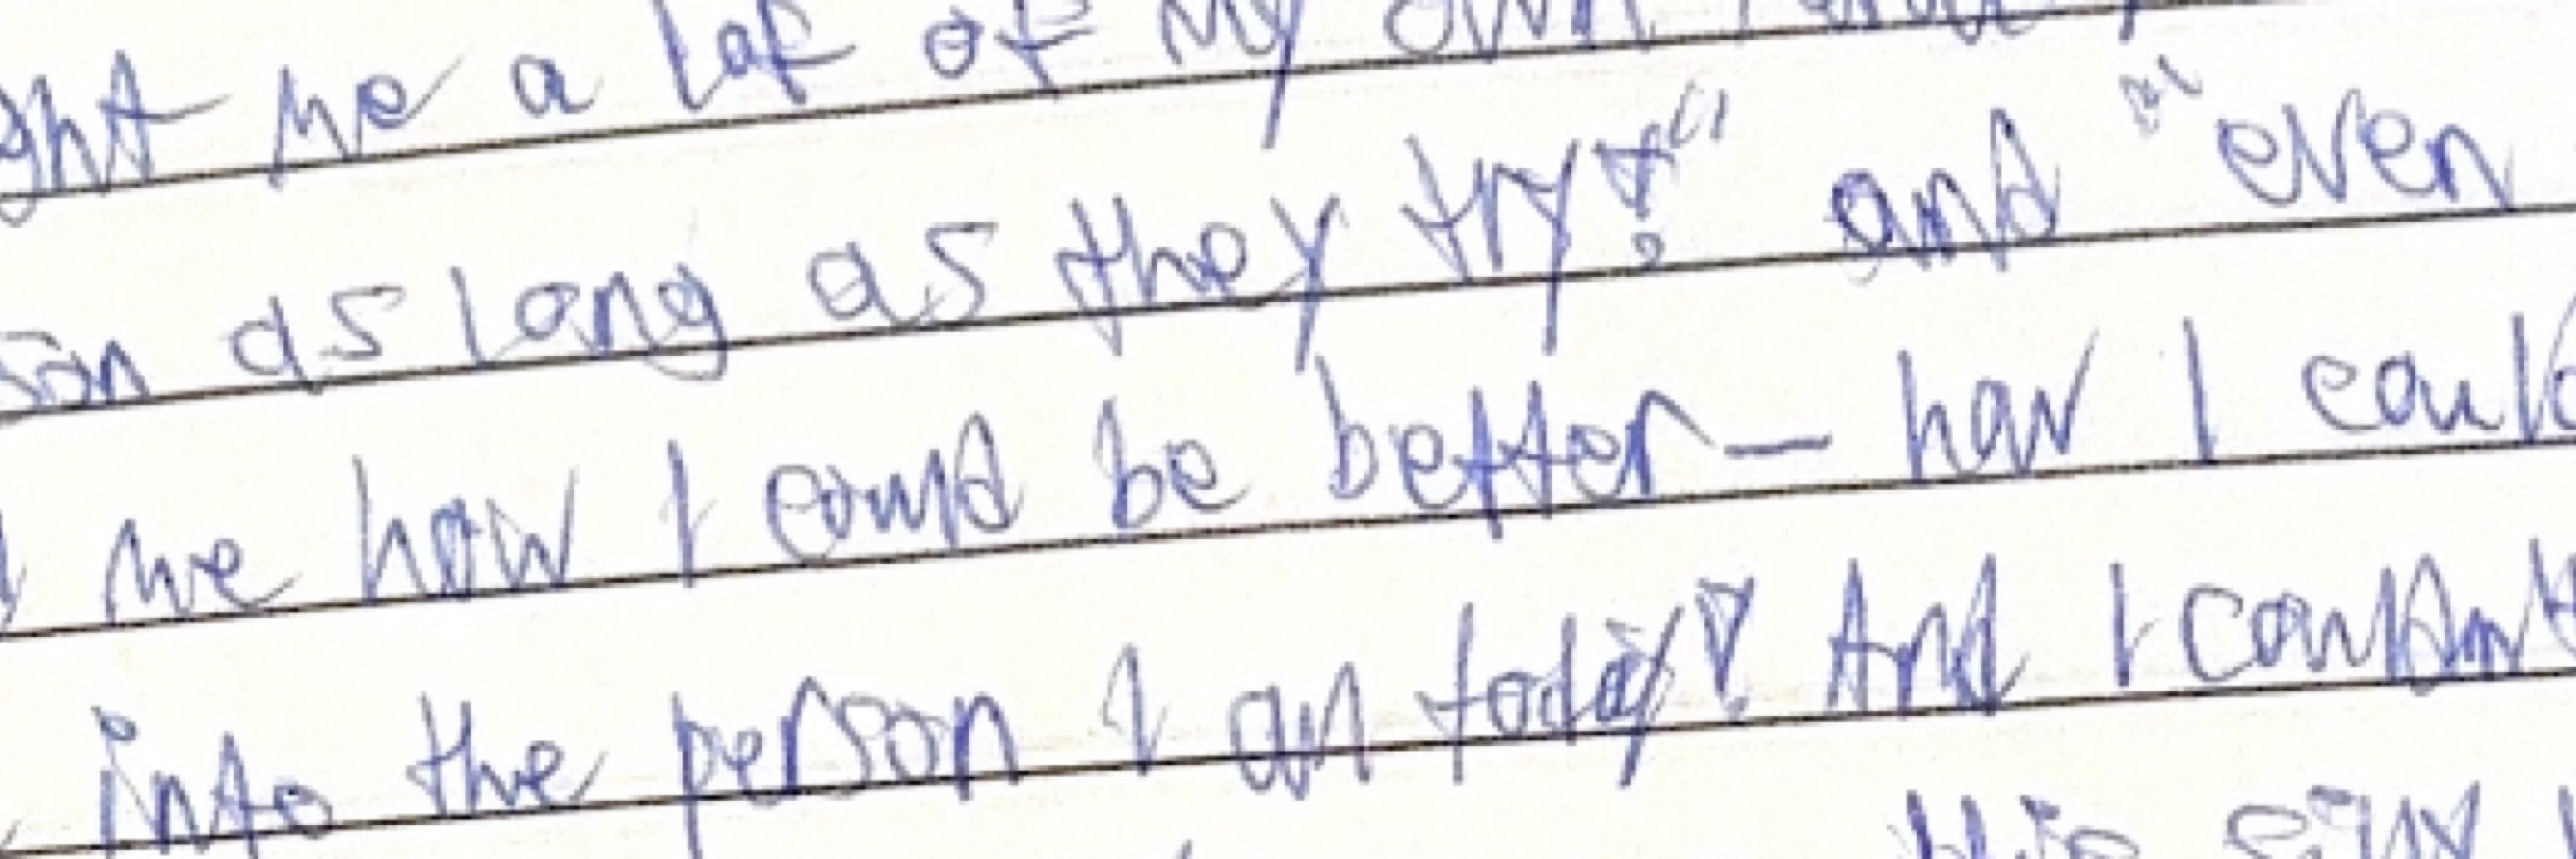 me a lot of my own
as long as they try!" and "even
me how I could be better – how I
into the person I am today! And I